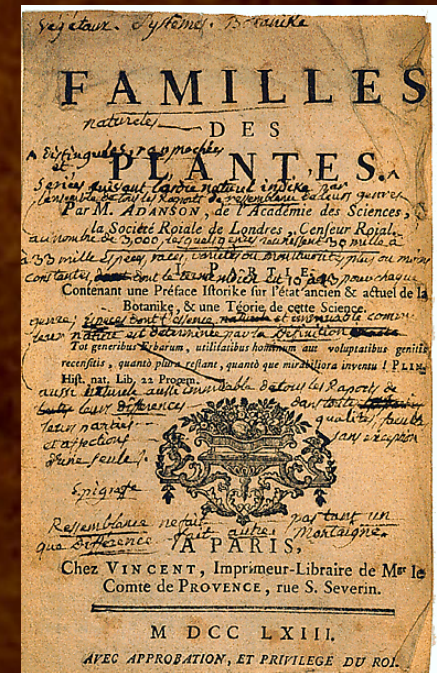 Végétaux. Systèmes. Botanike
FAMILLES
natureles
DES
Distinguées, rapprochées
et
PLANTES.
Séries suivant l'ordre naturel indiké par
l'ensemble de tous les Raports de ressemblance de leurs genres
Par M. ADANSON, de l'Académie des Sciences,
la Société Roiale de Londres, Censeur Roial.
au nombre de 3,000, lesquels genres réunissent 30 mille à
33 mille Espèces, races, variétés ou monstruosités plus ou moins
I. PARTIE.
constantes, dont le
pour chaque
Contenant une Préface Istorike sur l'état ancien & actuel de la
Botanike, & une Téorie de cette Science.
genre;
leur nature et déterminée par la définition
Tot generibus Erbarum, utilitatibus hominum aut voluptatibus genitis
recensitis, quantò plura restant, quantò que mirabiliora inventu ! PLIN.
Hist. nat. Lib. 22 Proœm.
aussi naturele aussi immuable de tous les Raports de
leurs différences dans toutes
leurs parties qualités, facultés
et affections sans exception
d'une seule.
Epigrafe
Ressemblance ne fait pas tant un
que Différence fait autre. Montaigne.
A PARIS,
Chez VINCENT, Imprimeur-Libraire de Mgr le
Comte de PROVENCE, rue S. Severin.
M DCC LXIII.
AVEC APPROBATION, ET PRIVILEGE DU ROI.